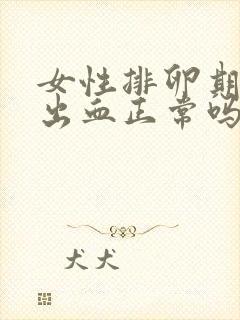 女性排卵期
出血正常吗
犬犬